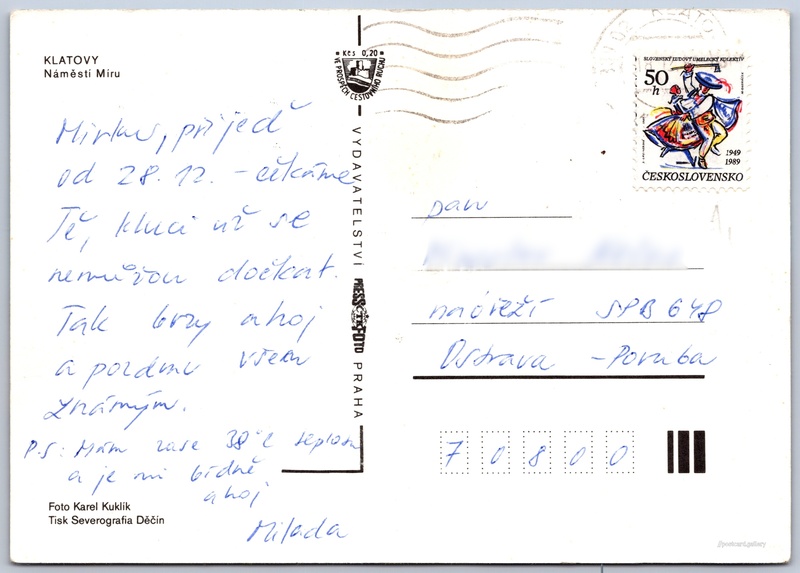 KLATOVY
Náměstí Míru
Mirku, přijeď
od 28.12. – čekáme
Tě, kluci už se
nemůžou dočkat.
Tak brzy ahoj
a pozdrav všem
známým.
P.S: Mám zase 38°C teplotu
a je mi bídně
ahoj
Milada
Foto Karel Kuklík
Tisk Severografia Děčín
Kčs 0,20
VE PROSPĚCH CESTOVNÍHO RUCHU
VYDAVATELSTVÍ
PRESSFOTO
PRAHA
SLOVENSKÝ ĽUDOVÝ UMELECKÝ KOLEKTÍV
50
h
1949
1989
ČESKOSLOVENSKO
pan
nábřeží SPB 648
Ostrava – Poruba
70800